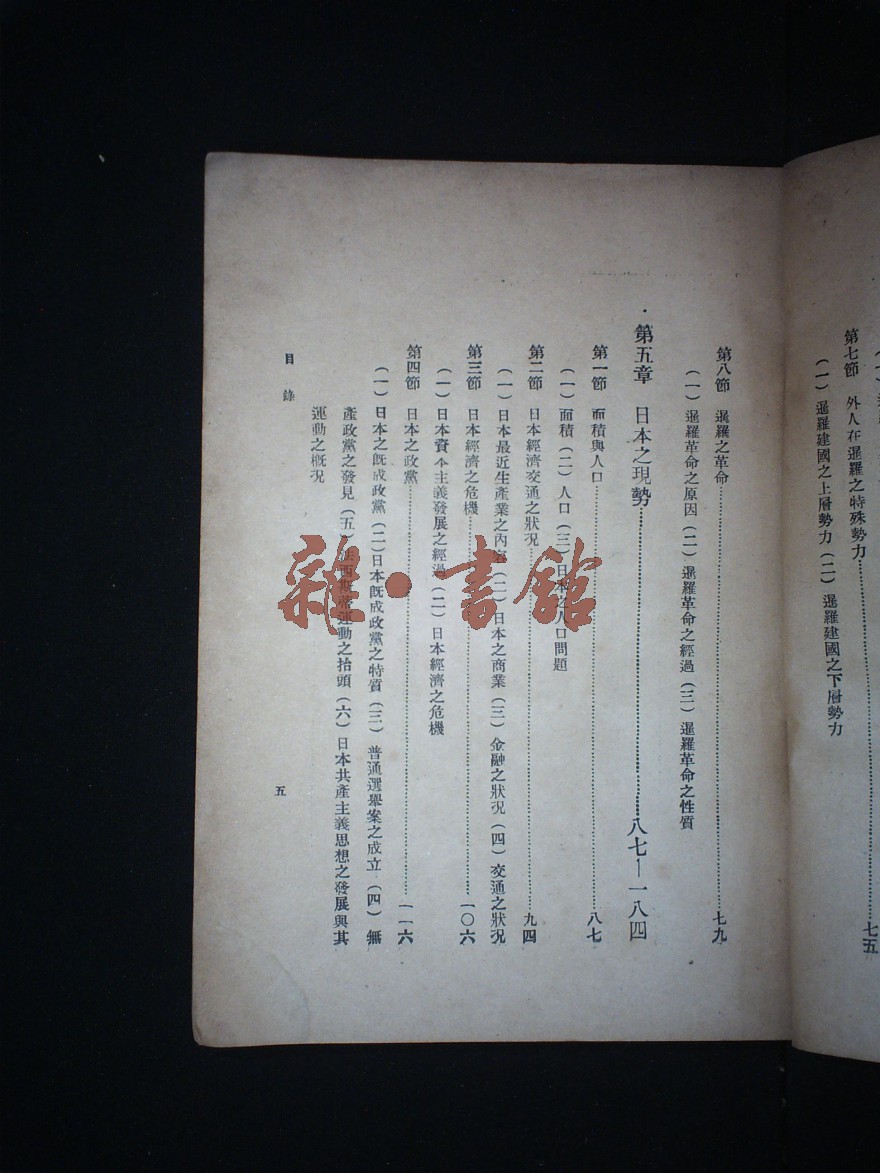 第七節　外人在暹羅之特殊勢力……七五
（一）暹羅建國之上層勢力（二）暹羅建國之下層勢力
第八節　暹羅之革命……七九
（一）暹羅革命之原因（二）暹羅革命之經過（三）暹羅革命之性質
第五章　日本之現勢……八七—一八四
第一節　面積與人口……八七
（一）面積（二）人口（三）日本之人口問題
第二節　日本經濟交通之狀況……九四
（一）日本最近生產業之內容（二）日本之商業（三）金融之狀況（四）交通之狀況
第三節　日本經濟之危機……一〇六
（一）日本資本主義發展之經過（二）日本經濟之危機
第四節　日本之政黨……一一六
（一）日本之既成政黨（二）日本既成政黨之特質（三）普通選舉案之成立（四）無
產政黨之發見（五）法西斯蒂運動之抬頭（六）日本共產主義思想之發展與其
運動之概況
目錄
五
雜·書館